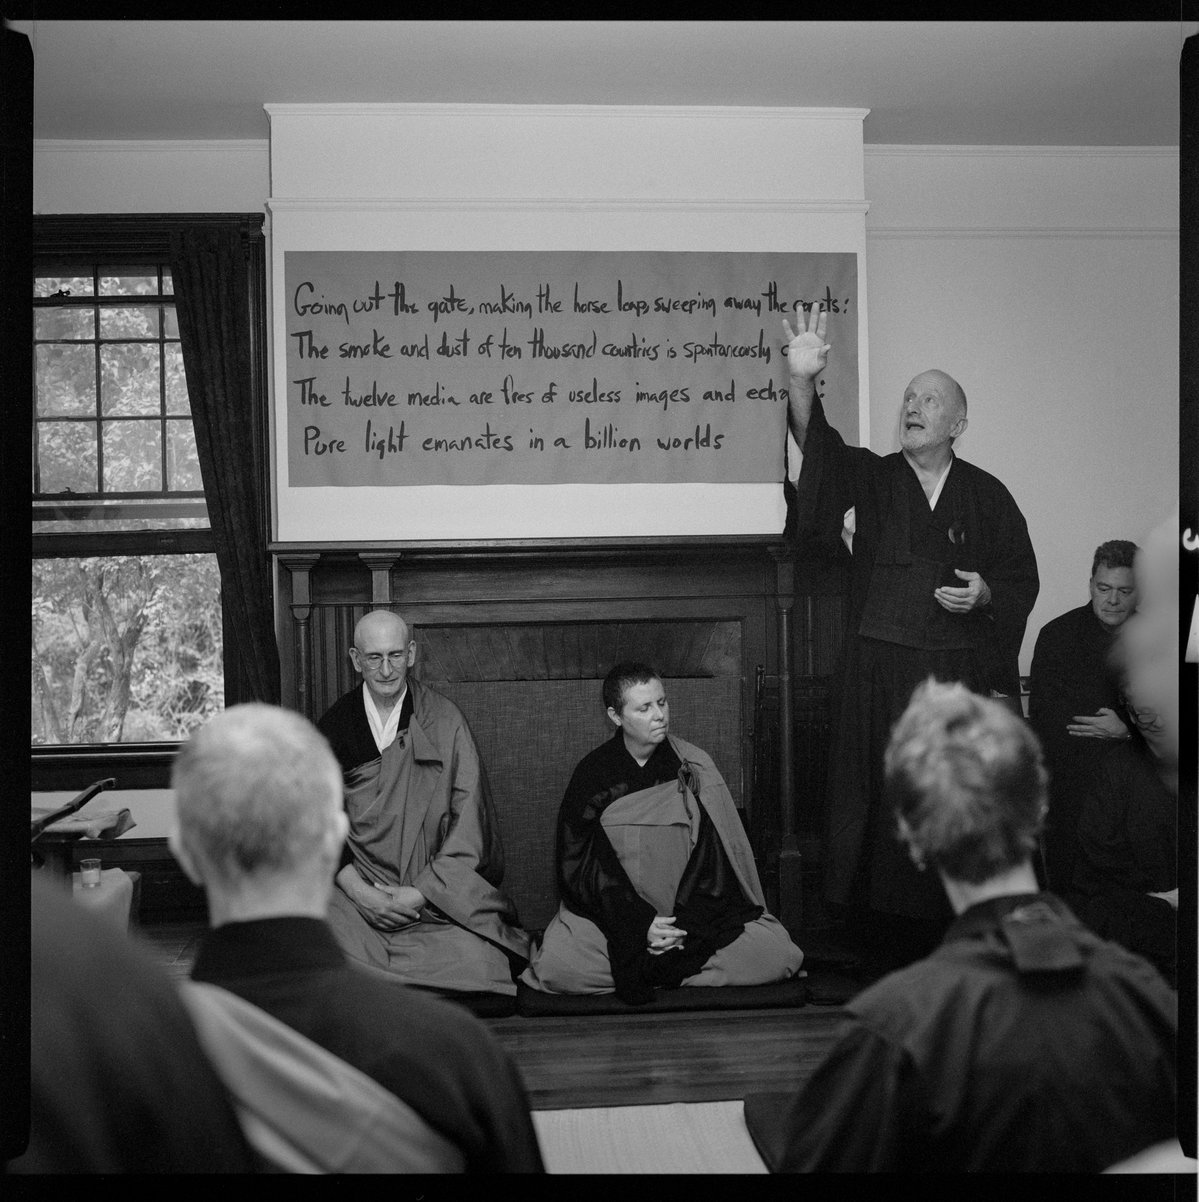 Going out the gate, making the horse leap, sweeping away the comets:
The smoke and dust of ten thousand countries is spontaneously
The twelve media are free of useless images and echoes:
Pure light emanates in a billion worlds